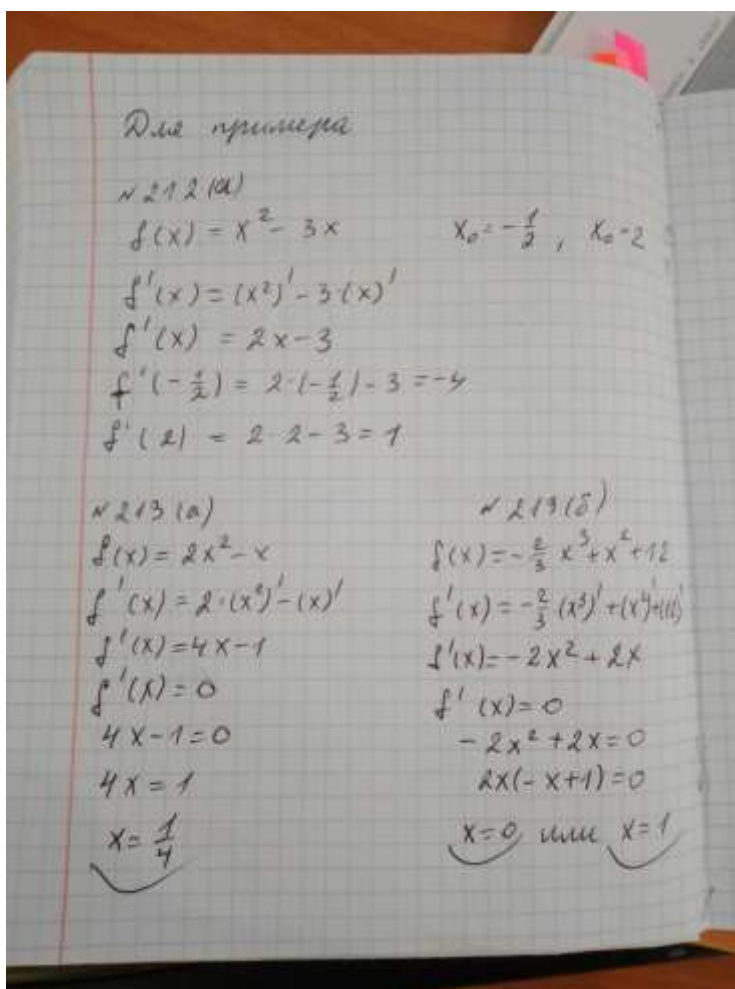 Для примера
№ 212 (а)
f(x) = x² - 3x    x₀ = -1/2 , x₀ = 2
f'(x) = (x²)' - 3·(x)'
f'(x) = 2x - 3
f'(-1/2) = 2·(-1/2) - 3 = -4
f'(2) = 2·2 - 3 = 1
№ 213 (а)
f(x) = 2x² - x
f'(x) = 2·(x²)' - (x)'
f'(x) = 4x - 1
f'(x) = 0
4x - 1 = 0
4x = 1
x = 1/4
№ 213 (б)
f(x) = -2/3 x³ + x² + 12
f'(x) = -2/3 (x³)' + (x²)' + (12)'
f'(x) = -2x² + 2x
f'(x) = 0
-2x² + 2x = 0
2x(-x+1) = 0
x = 0 или x = 1